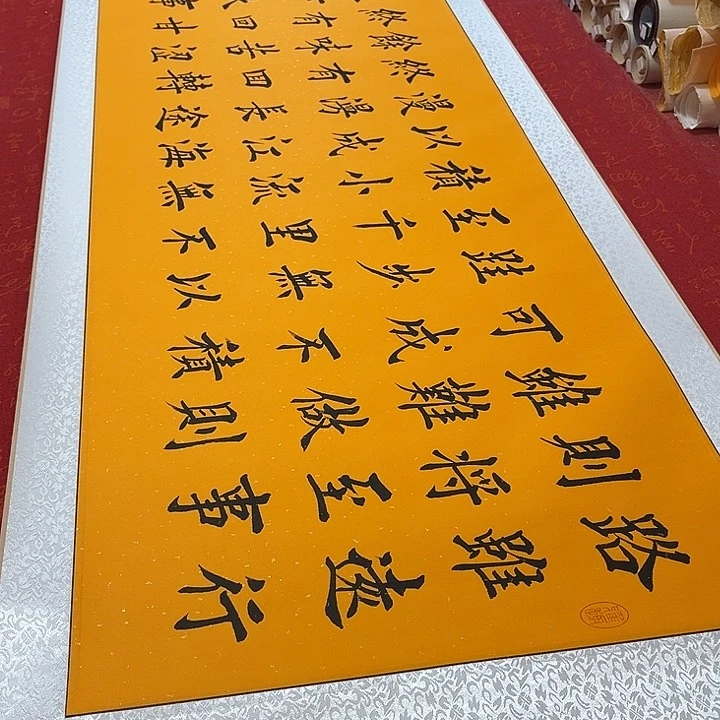 路雖遠行
則將至事
雖難做則
可成不積
跬步無以
至千里不
積小流無
以成江海
漫漫長途
終有回轉
餘味苦澀
終有回甘